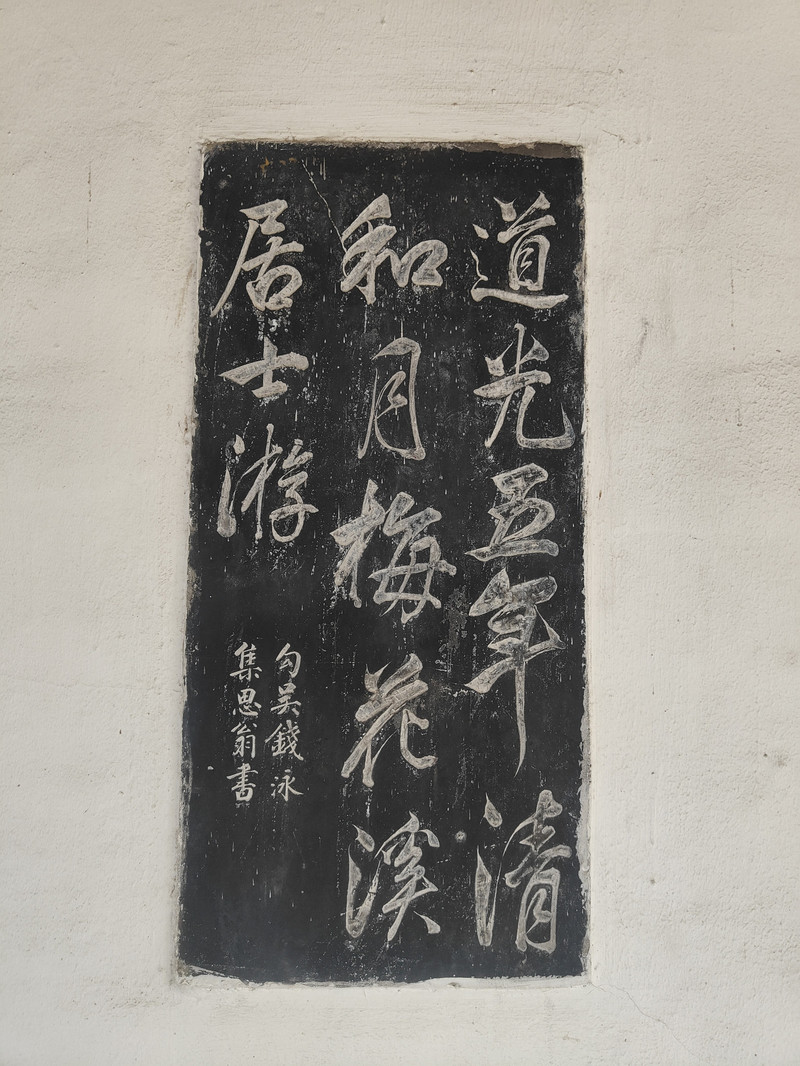 道光五年清
和月梅花溪
居士游
勾吴錢泳
集思翁書